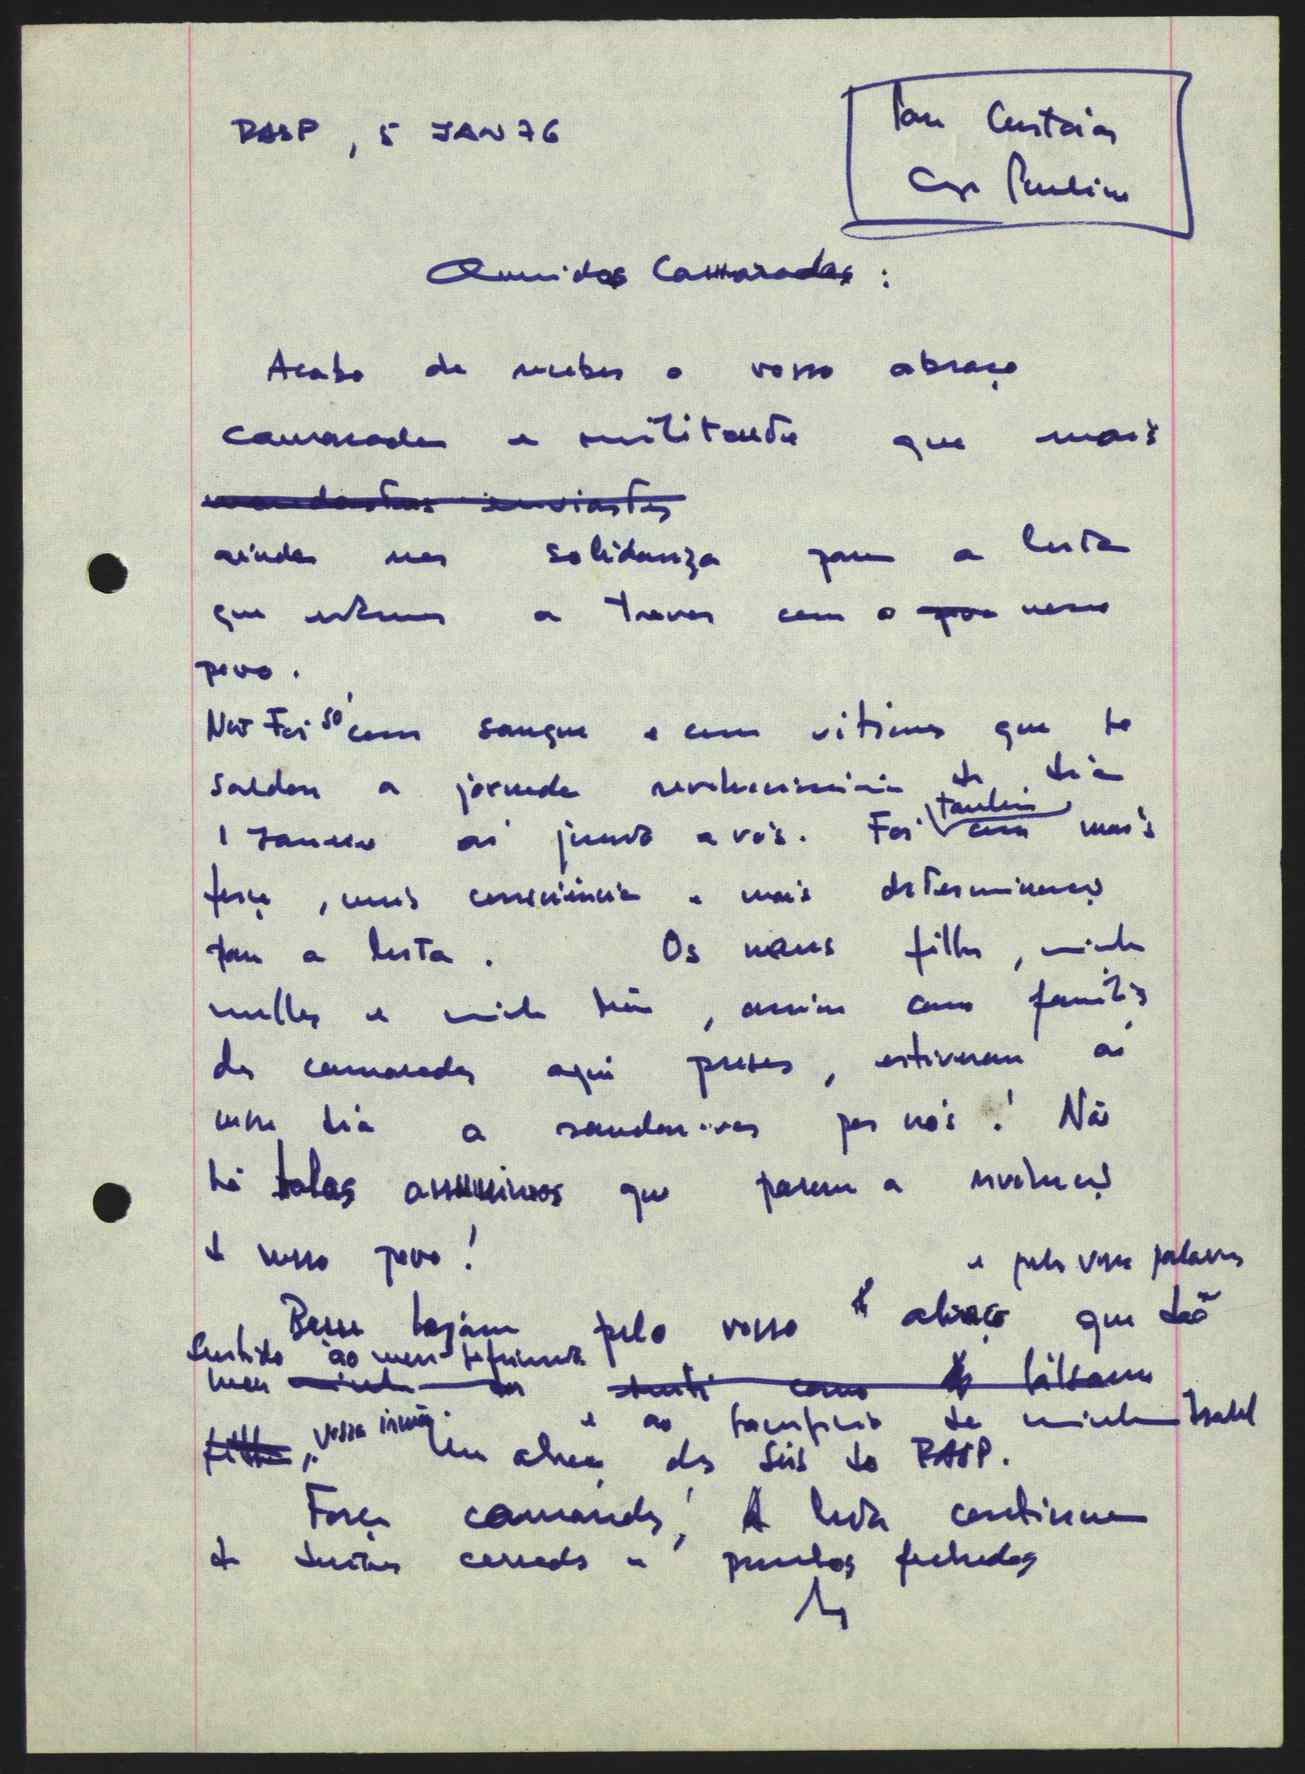 RASP, 5 JAN 76
Para Custoias
Cap Paulino
Queridos Camaradas:
Acabo de receber o vosso abraço
camarada e militante que mais
mandastes enviastes
ainda nos solidariza para a luta
que estamos a travar com o povo nosso
povo.
Não Foi só com sangue e com vitimas que se
saldou a jornada revolucionária do dia
1 Janeiro aí junto a vós. Foi também com mais
força, mais consciência e mais determinação
para a luta. Os meus filhos, minha
mulher e minha mãe, assim como familias
dos camaradas aqui presos, estiveram aí
nesse dia a saudar-vos por nós! Não
há balas assassinas que parem a revolução
do nosso povo!
e pelas vossas palavras
Bem hajam pelo vosso abraço que dão
Sentido ao meu sofrimento
meu como bálsamo
e ao sacrificio de minha Isabel
filha, vossa irmã. Um abraço dos Seis do RASP.
Força camaradas! A luta continua
de dentes cerrados e punhos fechados